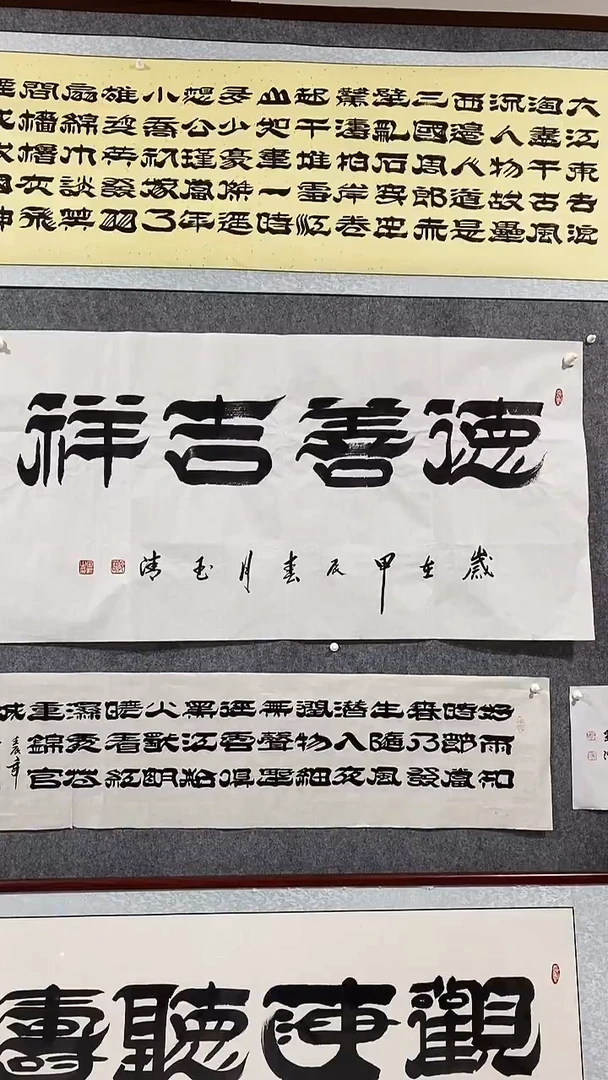 大江東去浪
淘盡千古風
流人物故壘
西邊人道是
三國周郎赤
壁亂石穿空
驚濤拍岸卷
起千堆雪江
山如畫一時
多少豪傑遥
想公瑾當年
小喬初嫁了
雄姿英發羽
扇綸巾談笑
間檣櫓灰飛
徳善吉祥
歲在甲辰春月玉清
好雨知
時節當
春乃發
生隨風
潛入夜
潤物細
無聲野
徑雲俱
黑江船
火獨明
曉看紅
濕處花
重錦官
城
觀海聽